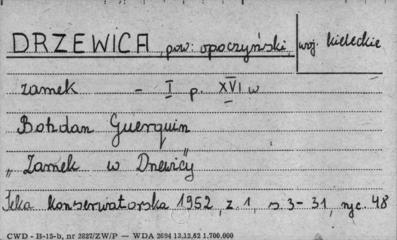 DRZEWICA, pow: opoczyński, woj. kieleckie
zamek - I p. XVI w
Bohdan Guerquin
"Zamek w Drzewicy"
Teka konserwatorska 1952, z. 1, s. 3-31, ryc. 48
CWD - B-15-b, nr 2827/ZW/P — WDA 2694 13.12.62 1.700.000